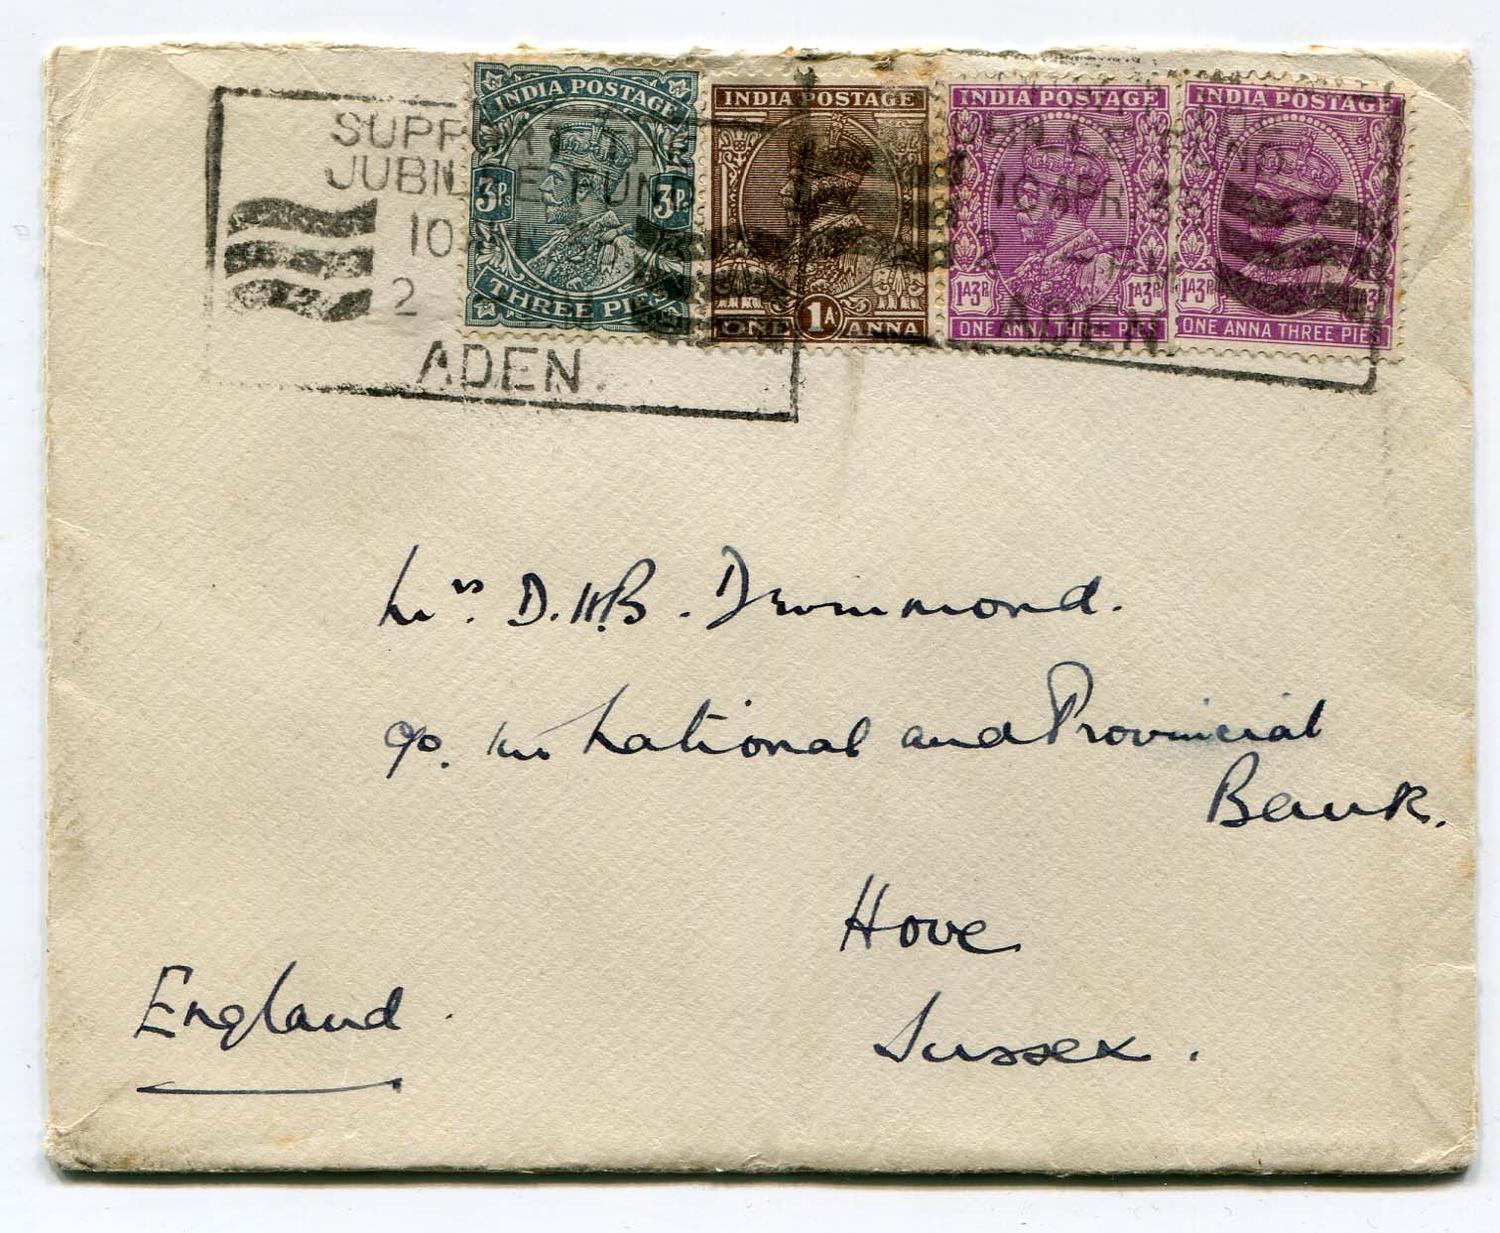 SUPPORT THE
JUBILEE FUND
10 APR 35
2 - PM
ADEN.
INDIA POSTAGE
3Ps 3Ps
THREE PIES
INDIA POSTAGE
1A
ONE ANNA
INDIA POSTAGE
1A3P 1A3P
ONE ANNA THREE PIES
INDIA POSTAGE
1A3P 1A3P
ONE ANNA THREE PIES
JUBILEE FUND
10 APR 35
2 - PM
ADEN.
Mrs. D.H.B. Drummond.
c/o. The National and Provincial
Bank.
Hove
Sussex.
England.